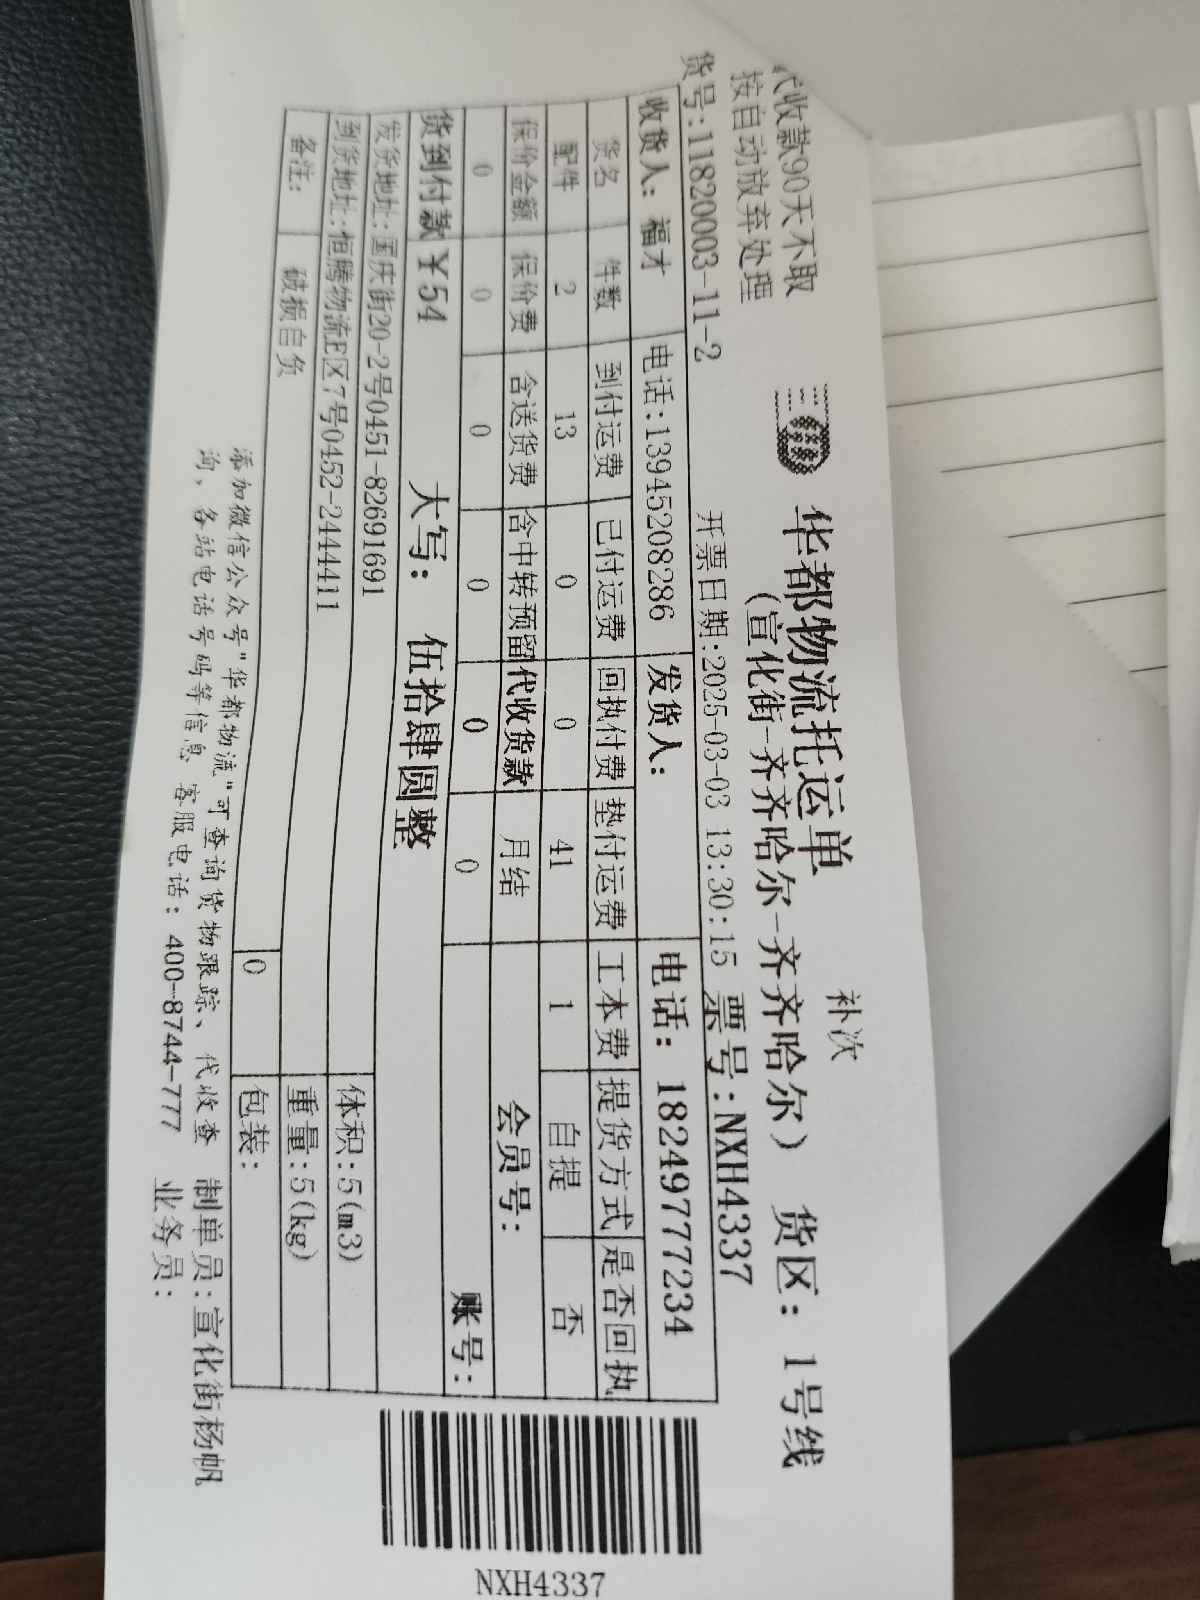 代收款90天不取
按自动放弃处理
补次
华都物流托运单
(宣化街-齐齐哈尔-齐齐哈尔)
货区: 1号线
货号:11820003-11-2 开票日期:2025-03-03 13:30:15 票号:NXH4337
收货人: 福才 电话:13945208286 发货人: 电话: 18249777234
货名 件数 到付运费 已付运费 回执付费 垫付运费 工本费 提货方式 是否回执
配件 2 13 0 0 41 1 自提 否
保价金额 保价费 含送货费 含中转预留 代收货款 月结 会员号:
0 0 0 0 0 0 账号:
货到付款￥54 大写: 伍拾肆圆整
发货地址:国庆街20-2号0451-82691691 体积:5(m3)
到货地址:恒腾物流E区7号0452-2444411 重量:5(kg)
备注: 破损自负 0 包装:
添加微信公众号"华都物流"可查询货物跟踪、代收查 制单员:宣化街杨帆
询、各站电话号码等信息 客服电话: 400-8744-777 业务员:
NXH4337